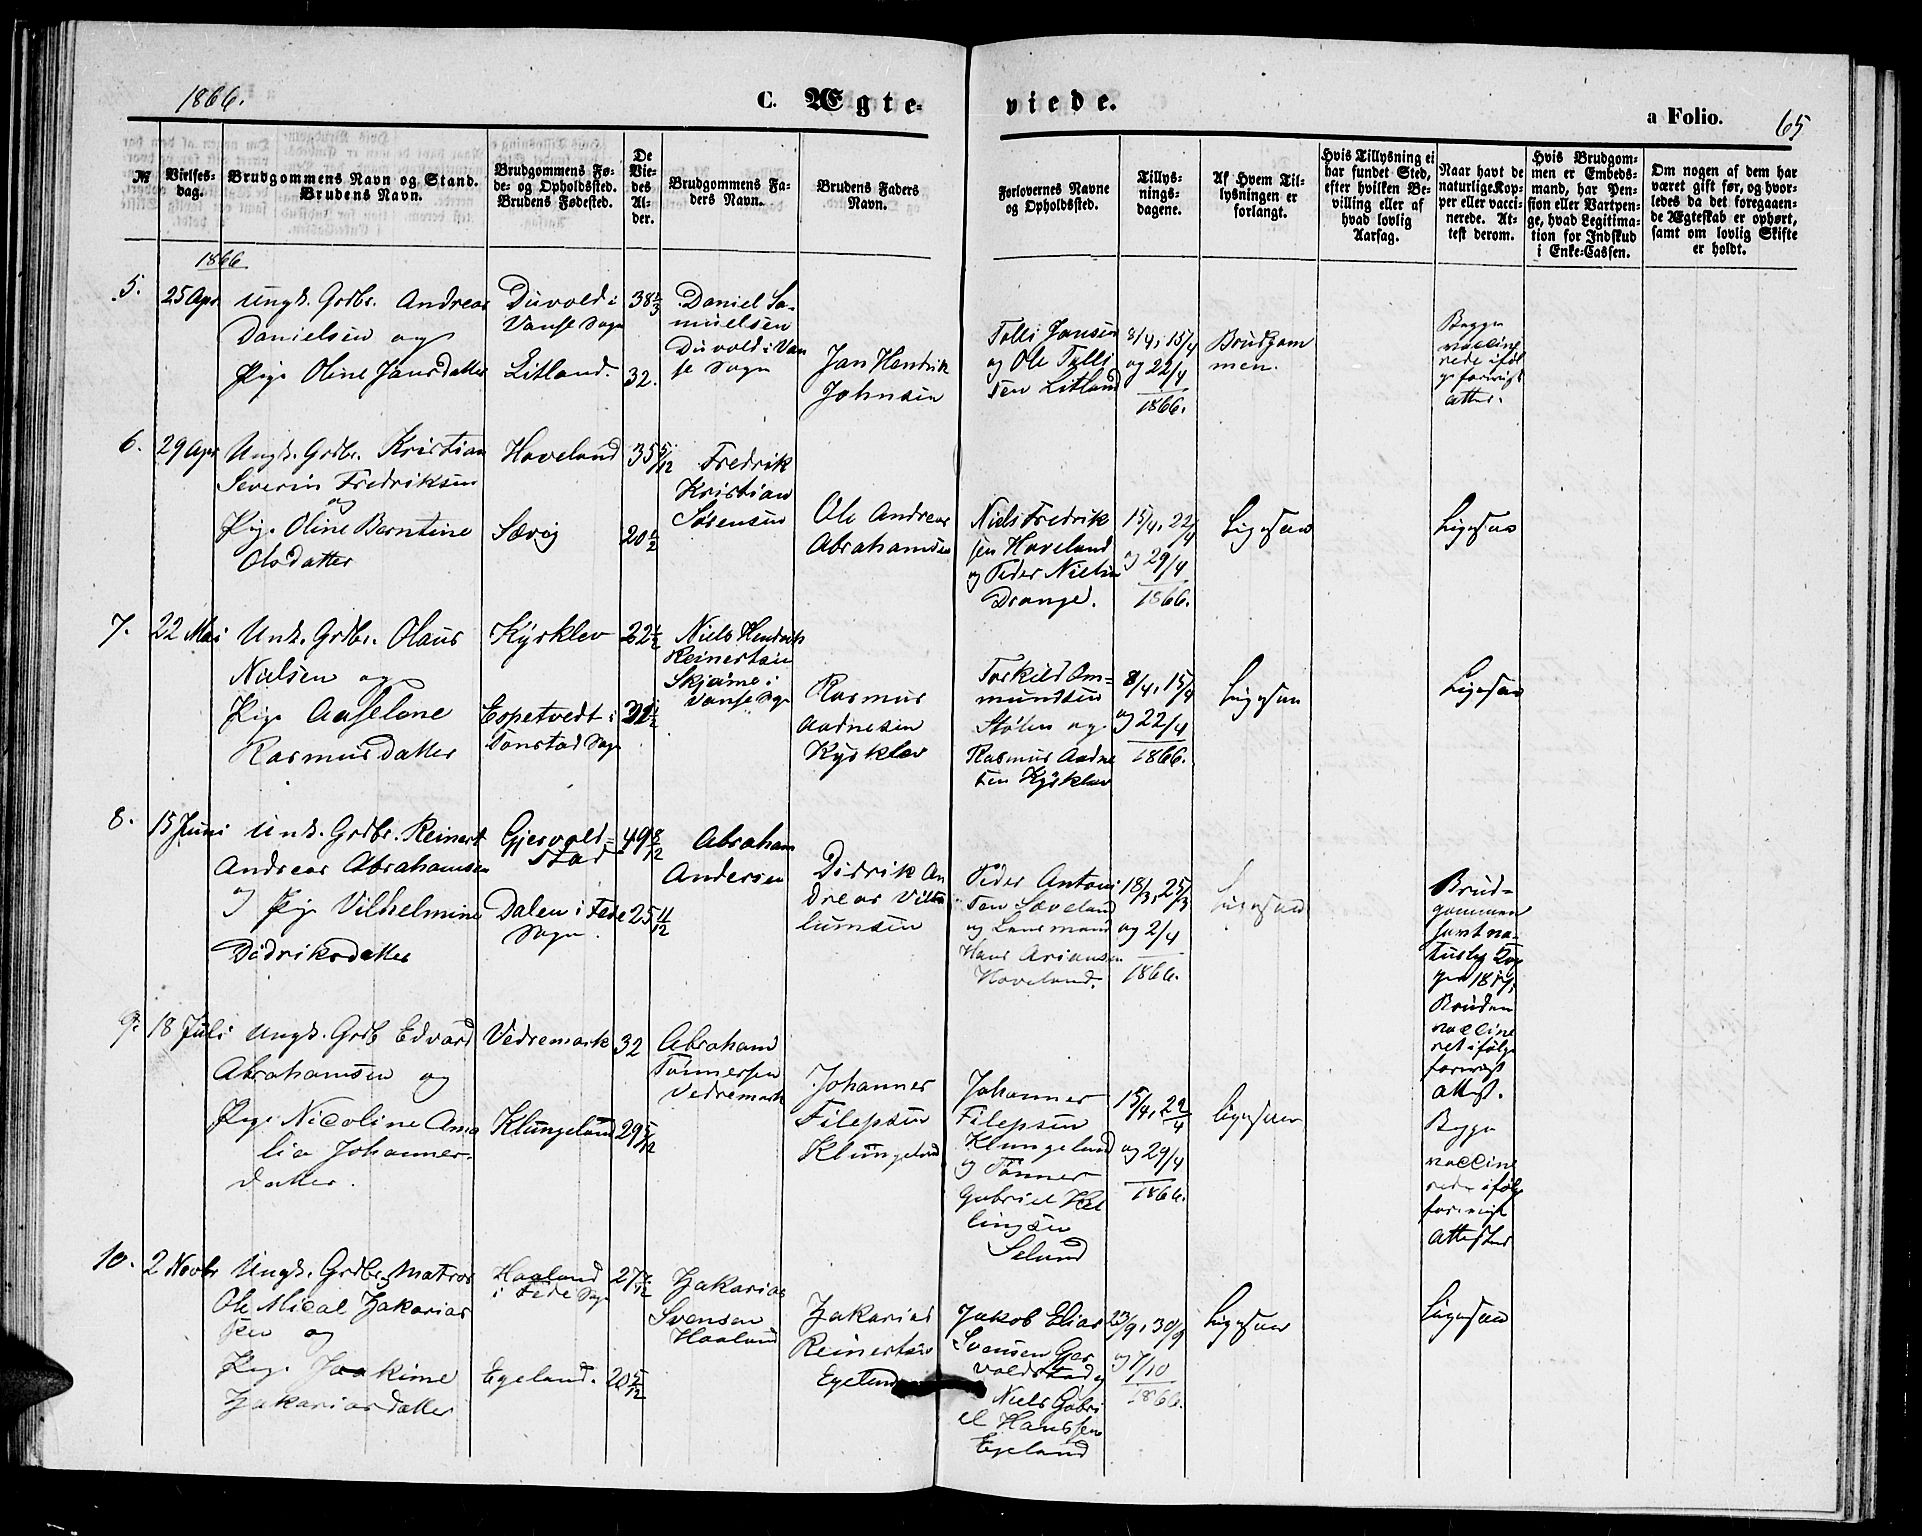 1866.
C. Ægte-
viede.
a Folio.
65
№
Vielses-
dag.
Brudgommens Navn og Stand.
Brudens Navn.
Brudgommens Fø-
de- og Opholdssted.
Brudens Fødested.
De
Vie-
des
Al-
der.
Brudgommens Fa-
ders Navn.
Brudens Faders
Navn.
Forlovernes Navne
og Opholdssted.
Tillys-
nings-
dagene.
Af Hvem Til-
lysningen er
forlangt.
Hvis Tillysning ei
har fundet Sted,
efter hvilken Be-
villing eller af
hvad lovlig
Aarsag.
Naar havt de
naturlige Kop-
per eller vacci-
nerede. At-
test derom.
Hvis Brudgom-
men er Embeds-
mand, har Pen-
sion eller Vartpen-
ge, hvad Legitima-
tion for Indskud
i Enke-Cassen.
Om nogen af dem har
været gift før, og hvor-
ledes da det foregaaen-
de Ægteskab er ophørt,
samt om lovlig Skifte
er holdt.
1866
5.
25 Apr
Ungk. Grdbr. Andreas
Danielsen og
Pige Oline Jansdatter
Duvold i
Vanse Sogn
Litland.
38 2/3
32.
Daniel Sa-
muelsen
Duvold i Van
se Sogn
Jan Hendrik
Johnsen
Tolli Jansen
og Ole Tolli
sen Litland
8/4, 15/4
og 22/4
1866.
Brudgom
men.
Begge
vaccine
rede iføl
ge forevigt
attes.
6.
29 Apr
Ungk. Grdbr. Kristian
Severin Fredriksen
og
Pige Oline Berntine
Olsdatter
Haveland
Sævig
35 5/12
20 1/2
Fredrik
Kristian
Sørensen
Ole Andreas
Abrahamsen
Niels Fredrik
sen Haveland
og Peder Nielsen
Drange.
15/4, 22/4
og 29/4
1866.
Ligesaa
Ligesaa
7.
22 Mai
Unk. Grdbr. Olaus
Nielsen og
Pige Aaselene
Rasmusdatter
Kyrklev
Espetvedt i
Tonstad Sogn
22 1/2
Niels Hendrik
Reinertsen
Skjøme i
Vanse Sogn
Rasmus
Aadnesen
Kyrklev
Torkild Om-
mundsen
Stølen og
Rasmus Aadne
sen Kyrklev
8/4, 15/4
og 22/4
1866.
Ligesaa
Ligesaa
8.
15 Juni
Unk. Grdbr. Reinert
Andreas Abrahamsen
og Pige Vilhelmine
Didriksdatter
Gjesvold-
stad
Dalen i Fede
Sogn.
49 8/12
25 11/12
Abraham
Andersen
Didrik An
dreas Vilhe
lumsen
Peder Antoni
sen Sæveland
og Lensmand
Hans Ariansen
Haveland.
18/3, 25/3
og 2/4
1866.
Ligesaa
Brud-
gommen
havt na-
turlig Kop
per
Bruden
vaccine
ret ifølge
forevist
attest.
9.
18 Juli
Ungk. Grdb Edvard
Abrahamsen og
Pige Nicoline Ama
lia Johannes-
datter.
Vedremark
Klungeland
32
29 5/12
Abraham
Tønnessen
Vedremark
Johannes
Filepsen
Klungeland
Johannes
Filepsen
Klungeland
og Tønnes
Gabriel Hel
lingsen
Selund
15/4, 22/4
og 29/4
1866.
Ligesaa
Begge
vaccine
rede ifølge
forevigt
attester
10.
2 Novbr
Ungk. Grdbr. Matros
Ole Mical Zakarias
sen og
Pige Joakime
Zakariasdatter
Haaland
i Fede Sogn
Egeland.
20 5/12
Zakarias
Svensen
Haaland
Zakarias
Reinertsen
Egeland
Jakob Elias
Svensen Gjes
voldstad og
Niels Gabri
el Hanssen
Egeland
23/9, 30/9
og 7/10
1866.
Ligesaa
Ligesaa